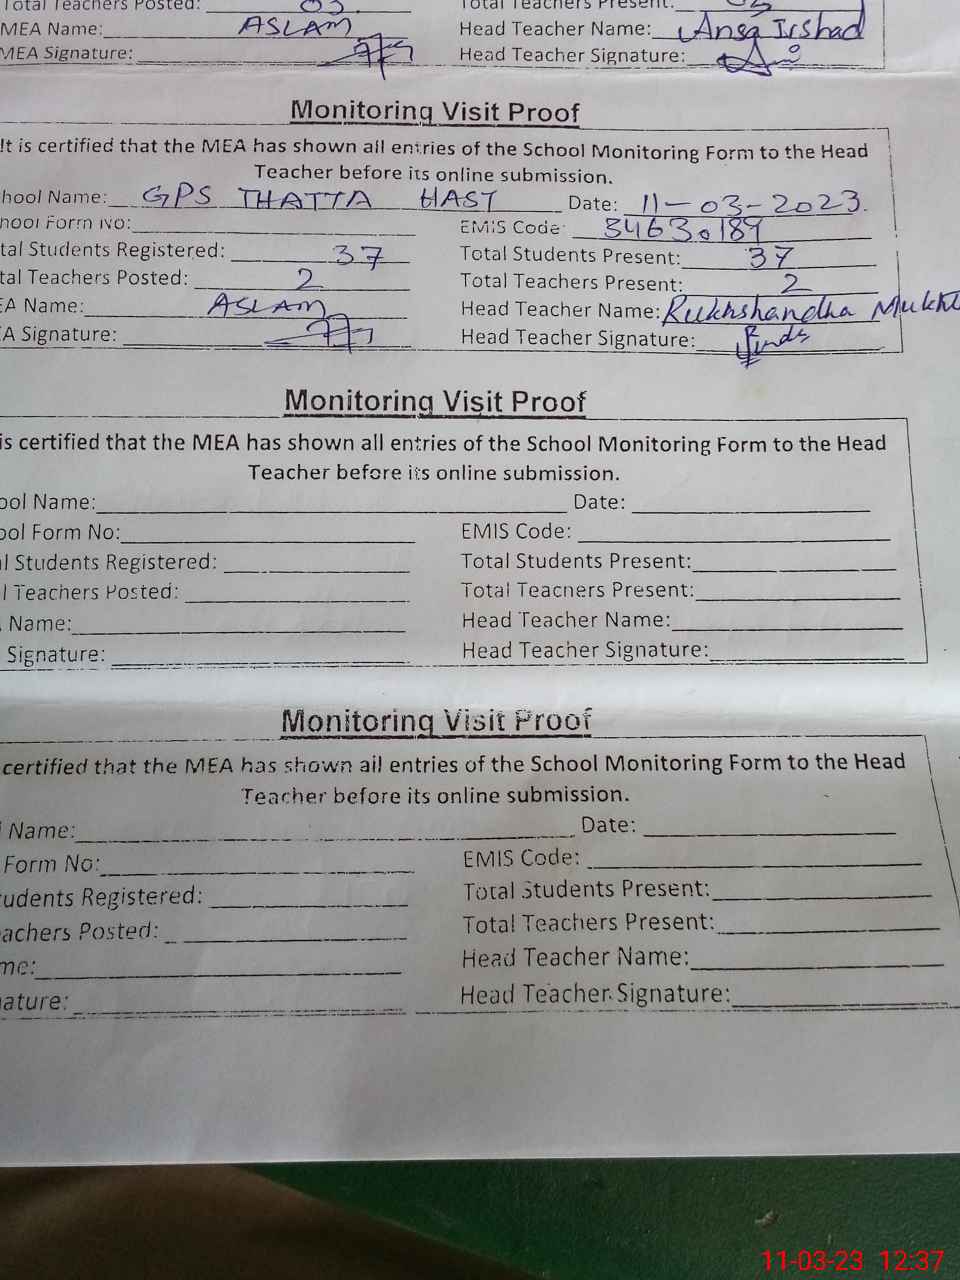 Total Teachers Posted: 03 Total Teachers Present:
MEA Name: ASLAM Head Teacher Name: Ansa Irshad
MEA Signature: Head Teacher Signature:
Monitoring Visit Proof
It is certified that the MEA has shown all entries of the School Monitoring Form to the Head
Teacher before its online submission.
hool Name: GPS THATTA HAST Date: 11-03-2023.
hool Form No: EMIS Code: 34630189
tal Students Registered: 37 Total Students Present: 37
tal Teachers Posted: 2 Total Teachers Present: 2
EA Name: ASLAM Head Teacher Name: Rukhshandha
EA Signature: Head Teacher Signature:
Monitoring Visit Proof
is certified that the MEA has shown all entries of the School Monitoring Form to the Head
Teacher before its online submission.
ool Name: Date:
ool Form No: EMIS Code:
l Students Registered: Total Students Present:
l Teachers Posted: Total Teachers Present:
Name: Head Teacher Name:
Signature: Head Teacher Signature:
Monitoring Visit Proof
certified that the MEA has shown all entries of the School Monitoring Form to the Head
Teacher before its online submission.
Name: Date:
Form No: EMIS Code:
udents Registered: Total Students Present:
achers Posted: Total Teachers Present:
me: Head Teacher Name:
ature: Head Teacher Signature:
11-03-23 12:37